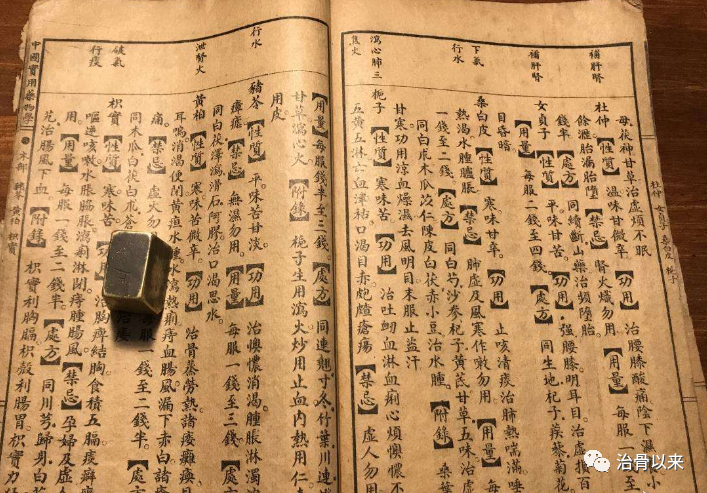 補肝腎
補肝腎
下氣
行水
瀉心肺三
焦火
母茯神甘草治虛煩不眠
杜仲【性質】溫味甘微辛【功用】治腰膝酸痛陰下濕
餘瀝胎漏胎墮【禁忌】腎火熾勿用。【用量】每服一
錢半【處方】同續斷山藥治頻墮胎
女貞子【性質】平味甘苦。【功用】強腰膝明耳目治虛損百
【用量】每服二錢至四錢。【處方】同生地杞子蒺藜菊花
目昏暗
桑白皮【性質】寒味甘辛。【功用】止咳清痰治肺熱喘滿唾
熱渴水腫臚脹【禁忌】肺虛及風寒作嗽勿用。【用量】每
一錢至二錢【處方】同白芍沙參杞子黃芪甘草五味治虛
同白朮木瓜苡仁陳皮白茯赤小豆治水腫【附錄】桑葉
甘寒功用涼血燥濕去風明目末服止盜汗
梔子【性質】寒味苦【功用】治吐衄血淋血痢心煩懊憹不
五黃五淋亡血津枯口渴目赤皰皶瘡瘍【禁忌】虛人勿用
杜仲 女貞子 桑白皮 梔子
行水
泄腎火
破氣
行痰
【用量】每服錢半至三錢。【處方】同連翹寸冬竹葉川連
甘草瀉心火【附錄】梔子生用瀉火炒用止血內熱用仁
用皮
豬苓【性質】平味苦甘淡【功用】治懊憹消渴腫脹淋濁
瘴瘧【禁忌】無濕勿用。【用量】每服一錢至三錢【處方】
同白茯澤瀉滑石阿膠治口渴思水
黃柏【性質】寒味苦微辛【功用】治骨蒸勞熱諸痿癱瘓
耳鳴消渴便閉黃疸水腫水瀉熱痢痔血腸風漏下赤白諸瘡
痛【禁忌】虛人勿 一錢至二錢半。【處方】
同木瓜白茯白朮蒼
枳實【性質】寒味苦【功用】治胸痺結胸食積五膈痰癖
嘔逆咳嗽水脹腸脹瀉痢淋閉痔腫腸風【禁忌】孕婦及虛人
用【用量】每服一錢至二錢半【處方】同川芎歸身白
芄治腸風下血【附錄】枳實利胸膈枳殼利腸胃枳實力
中國實用藥物學 木部 豬苓 黃柏 枳實
治骨以来